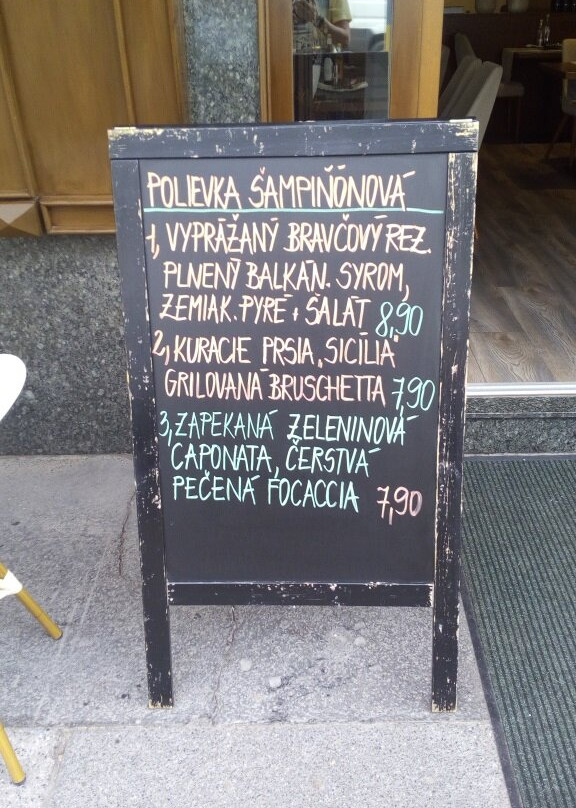 POLIEVKA ŠAMPIŇÓNOVÁ
1, VYPRÁŽANÝ BRAVČOVÝ REZ.
PLNENÝ BALKÁN. SYROM,
ZEMIAK. PYRÉ + ŠALÁT 8,90
2, KURACIE PRSIA "SICÍLIA"
GRILOVANÁ BRUSCHETTA 7,90
3, ZAPEKANÁ ZELENINOVÁ
CAPONATA, ČERSTVÁ
PEČENÁ FOCACCIA 7,90